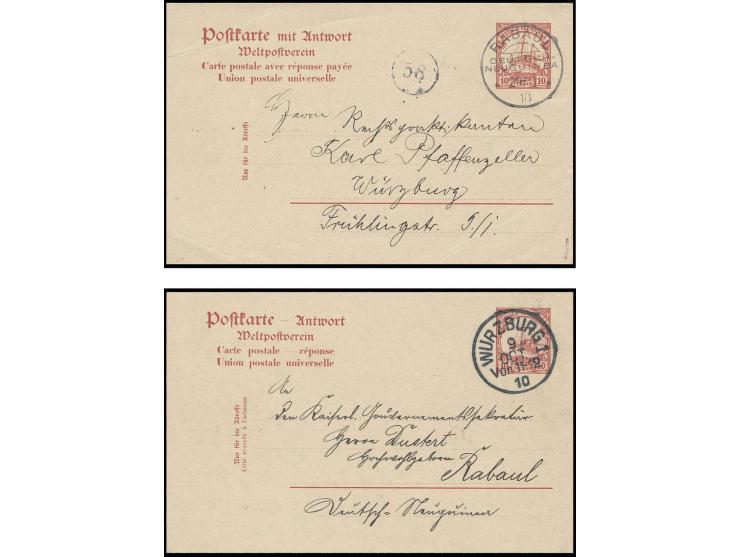 Postkarte mit Antwort
Weltpostverein
Carte postale avec réponse payée
Union postale universelle
58
RABAUL
DEUTSCH-
NEUGUINEA
10
10 10
Nur für die Adresse
Herrn Rechtspraktikanten
Karl Pfaffenzeller
Würzburg
Frühlingstr.
Postkarte – Antwort
Weltpostverein
Carte postale — réponse
Union postale universelle
WÜRZBURG 1
9
OCT
Vor. 11-12
10
Nur für die Adresse
Côté réservé à l'adresse
An
den Kaiserl. Gouvernementssekretär
Herrn Dustert
Hochwohlgeboren
Rabaul
Deutsch-Neuguinea